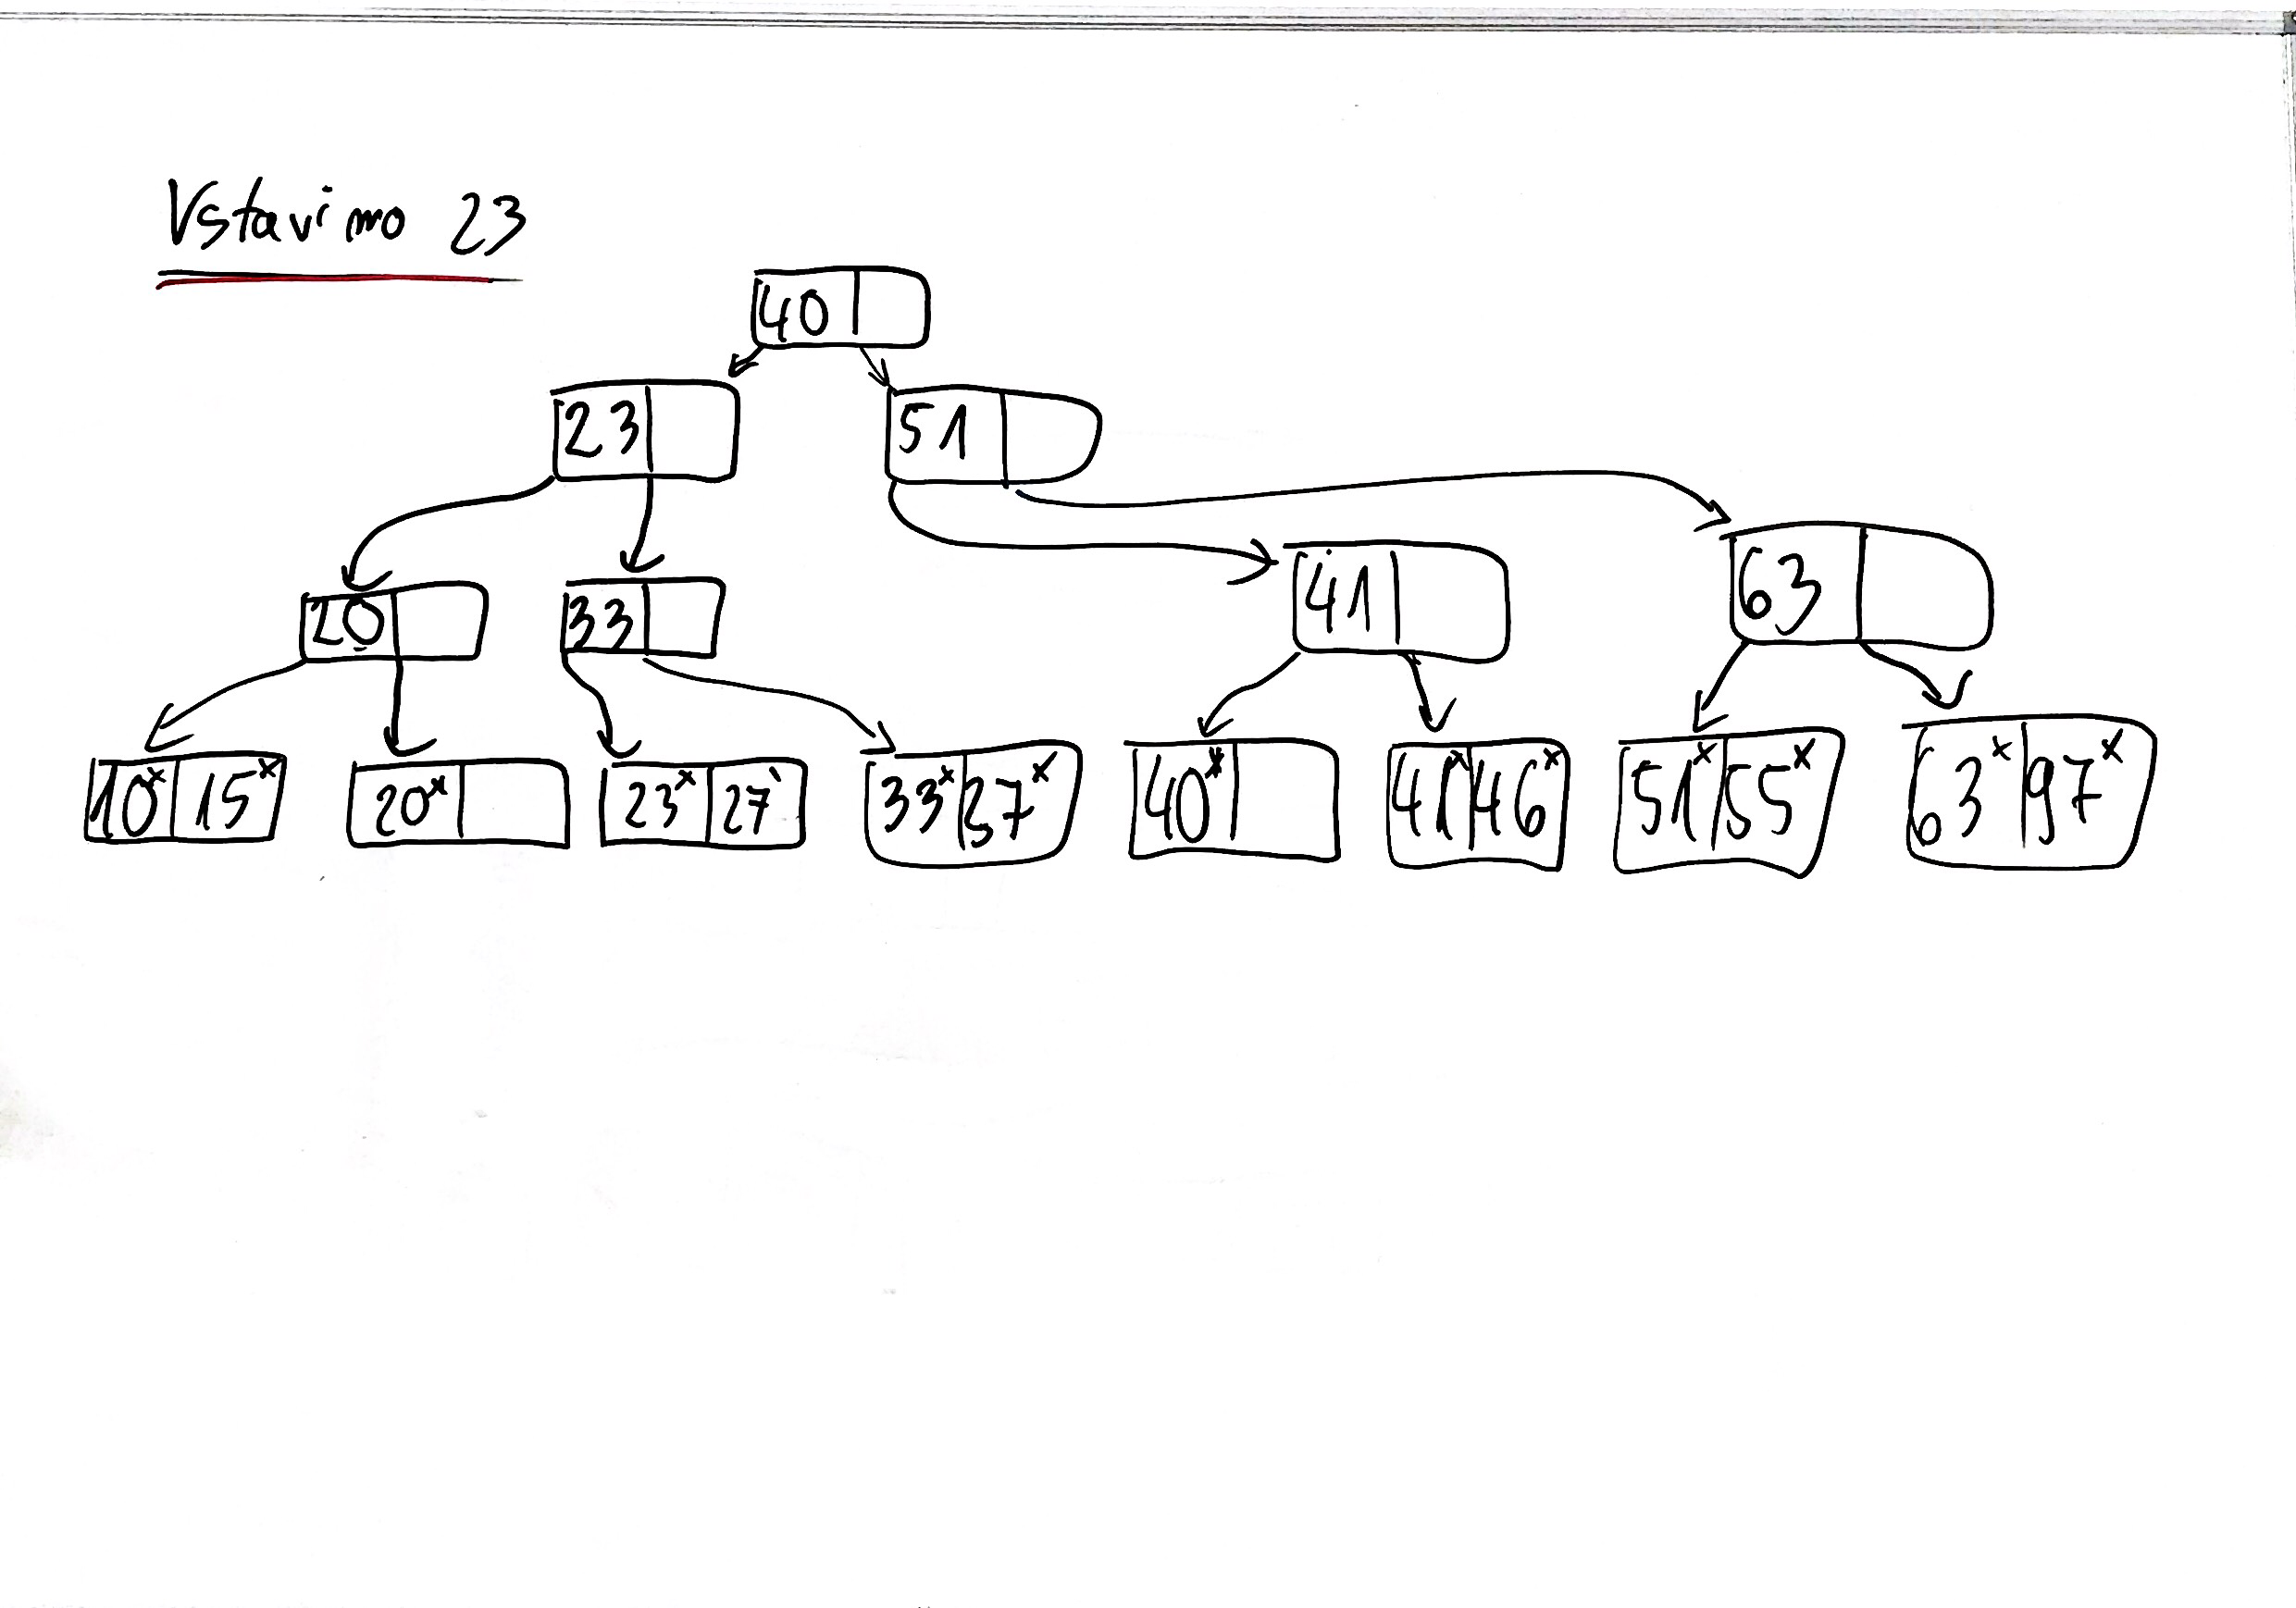 Vstavimo 23
40
23 51
20 33 41 63
10* 15* 20* 23* 27* 33* 37* 40* 41* 46* 51* 55* 63* 97*